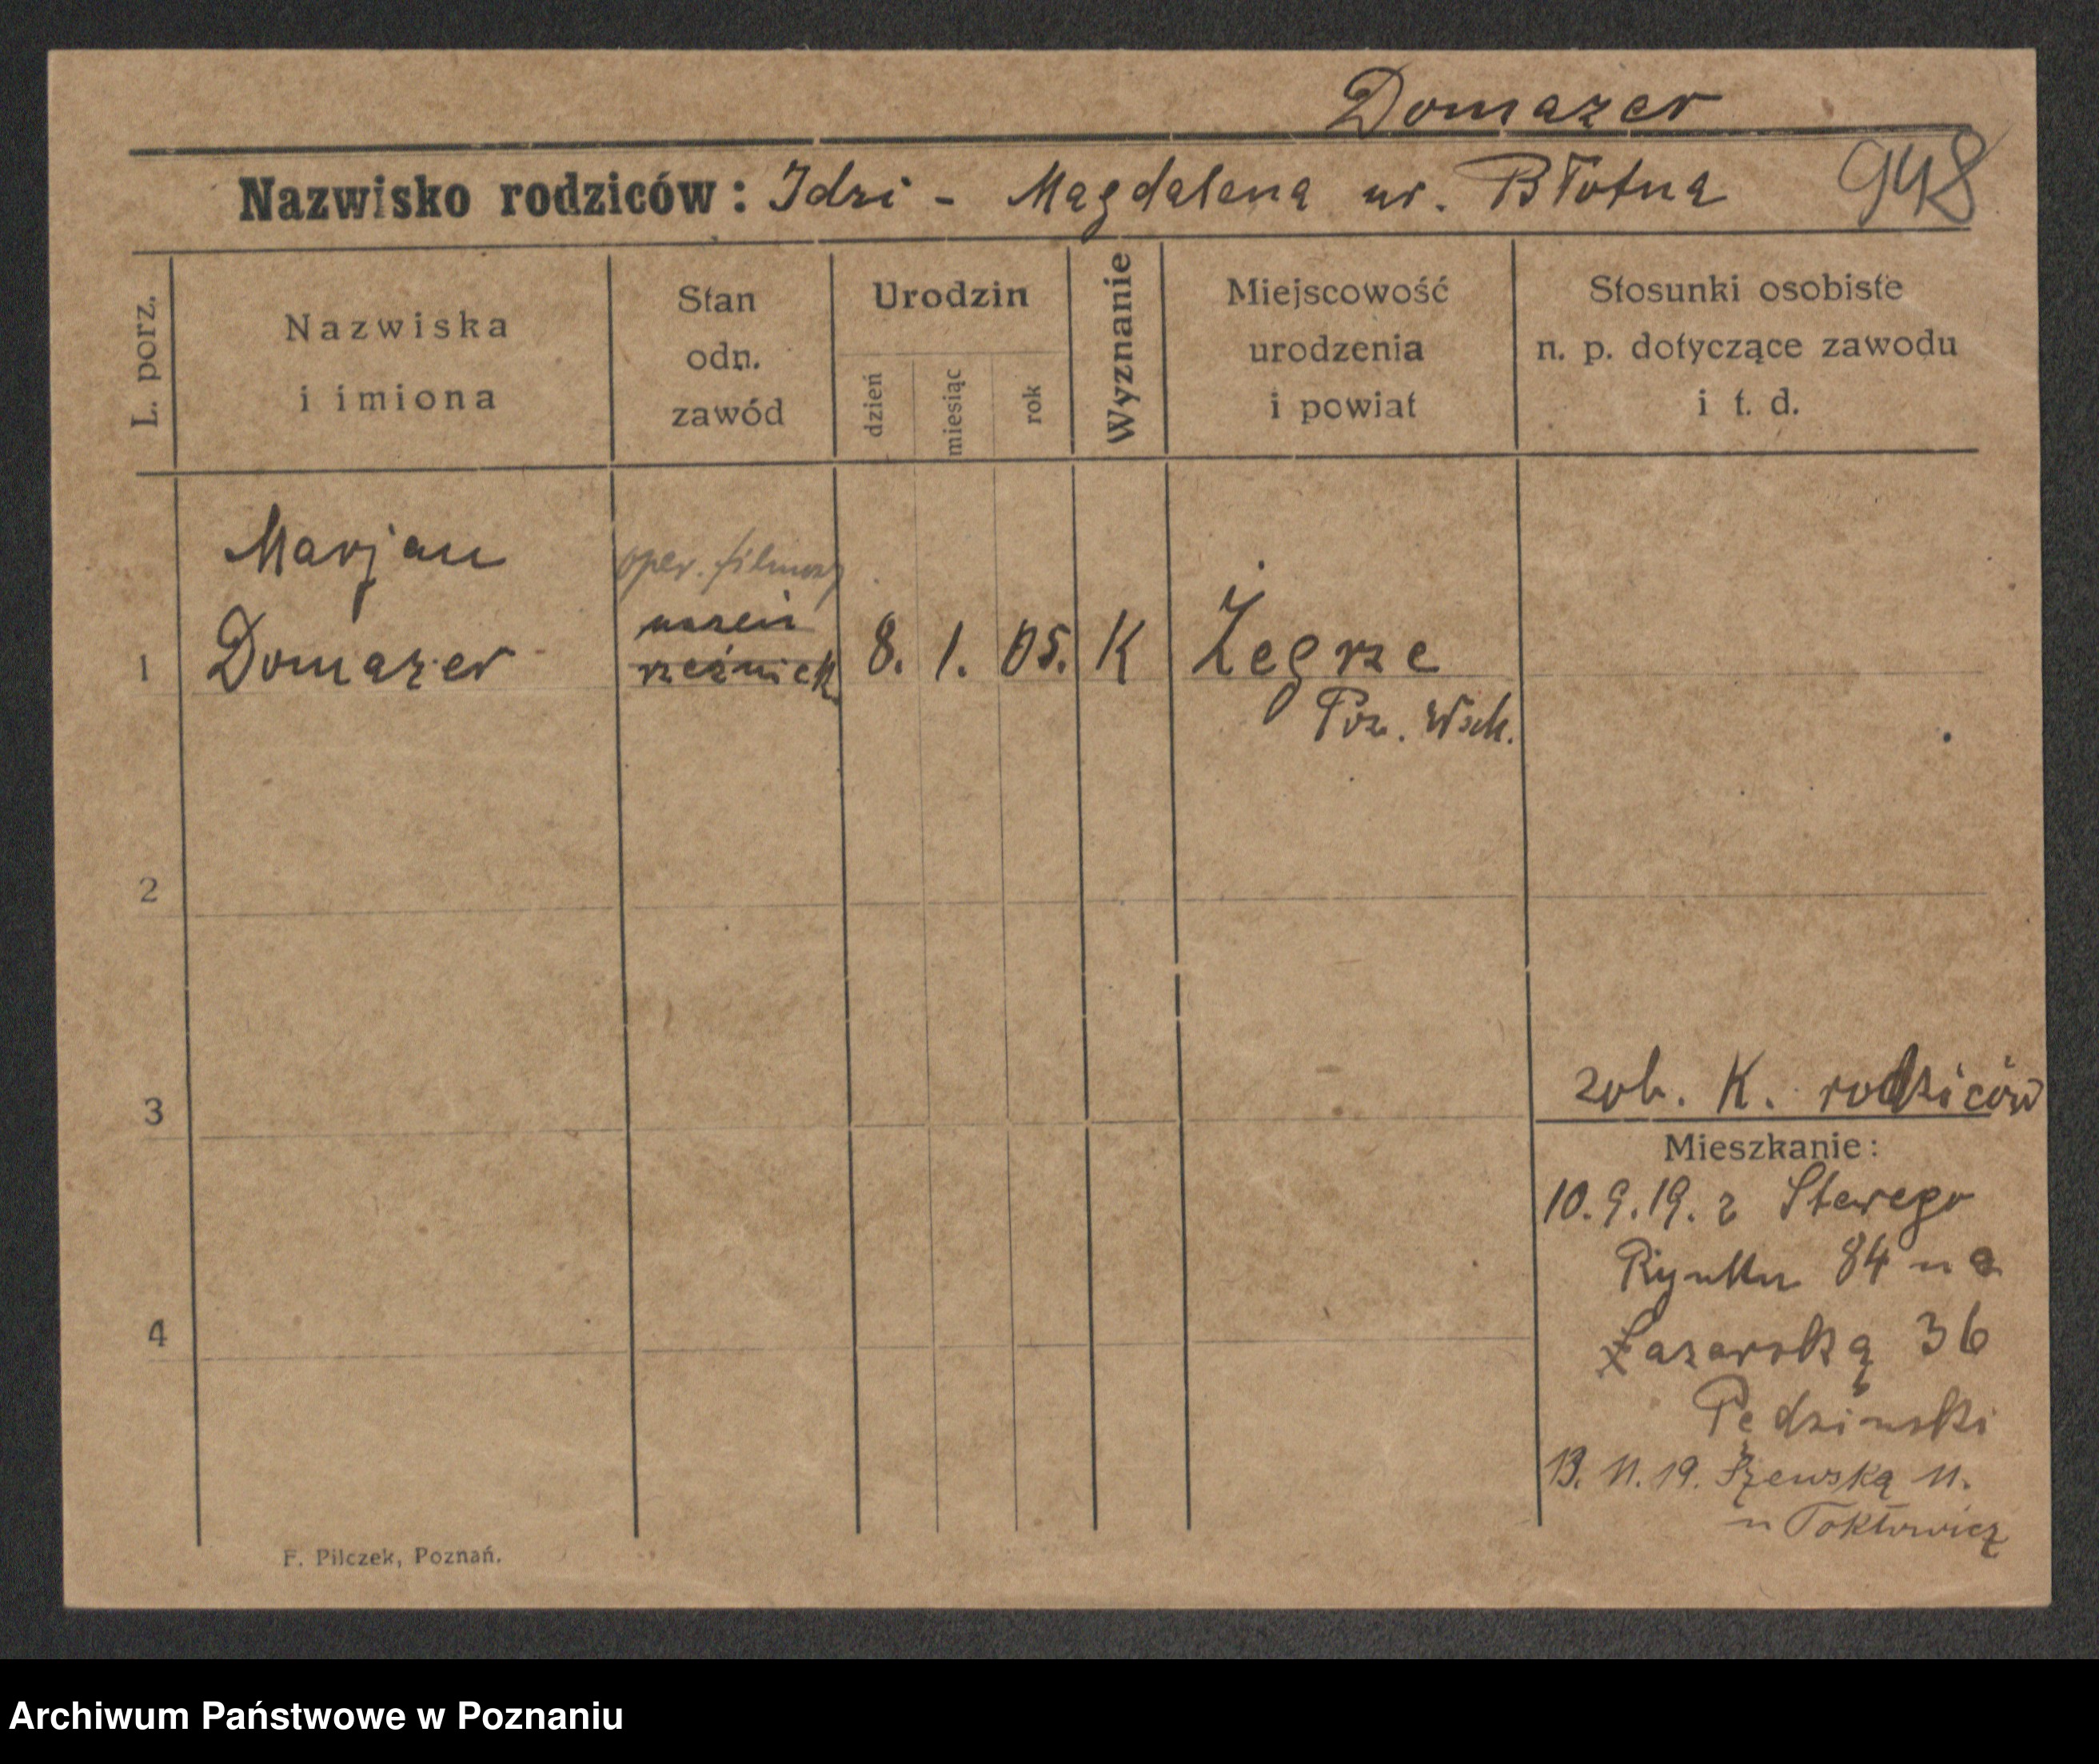 Domazer
Nazwisko rodziców: Idzi - Magdalena ur. Błotna 948
L. porz.
Nazwiska
i imiona
Stan
odn.
zawód
Urodzin
dzień
miesiąc
rok
Wyznanie
Miejscowość
urodzenia
i powiat
Stosunki osobiste
n. p. dotyczące zawodu
i t. d.
Marjan
oper. filmowy
uczeń
1 Domazer rzeźnick 8. 1. 05. K Żegrze
Poz. Wsch.
2
zob. K. rodziców
3
Mieszkanie:
10.9.19. z Starego
Rynku 84 na
4
Łazarską 36
Pędziński
13. 11. 19. Szewską 11.
F. Pilczek, Poznań.
Archiwum Państwowe w Poznaniu